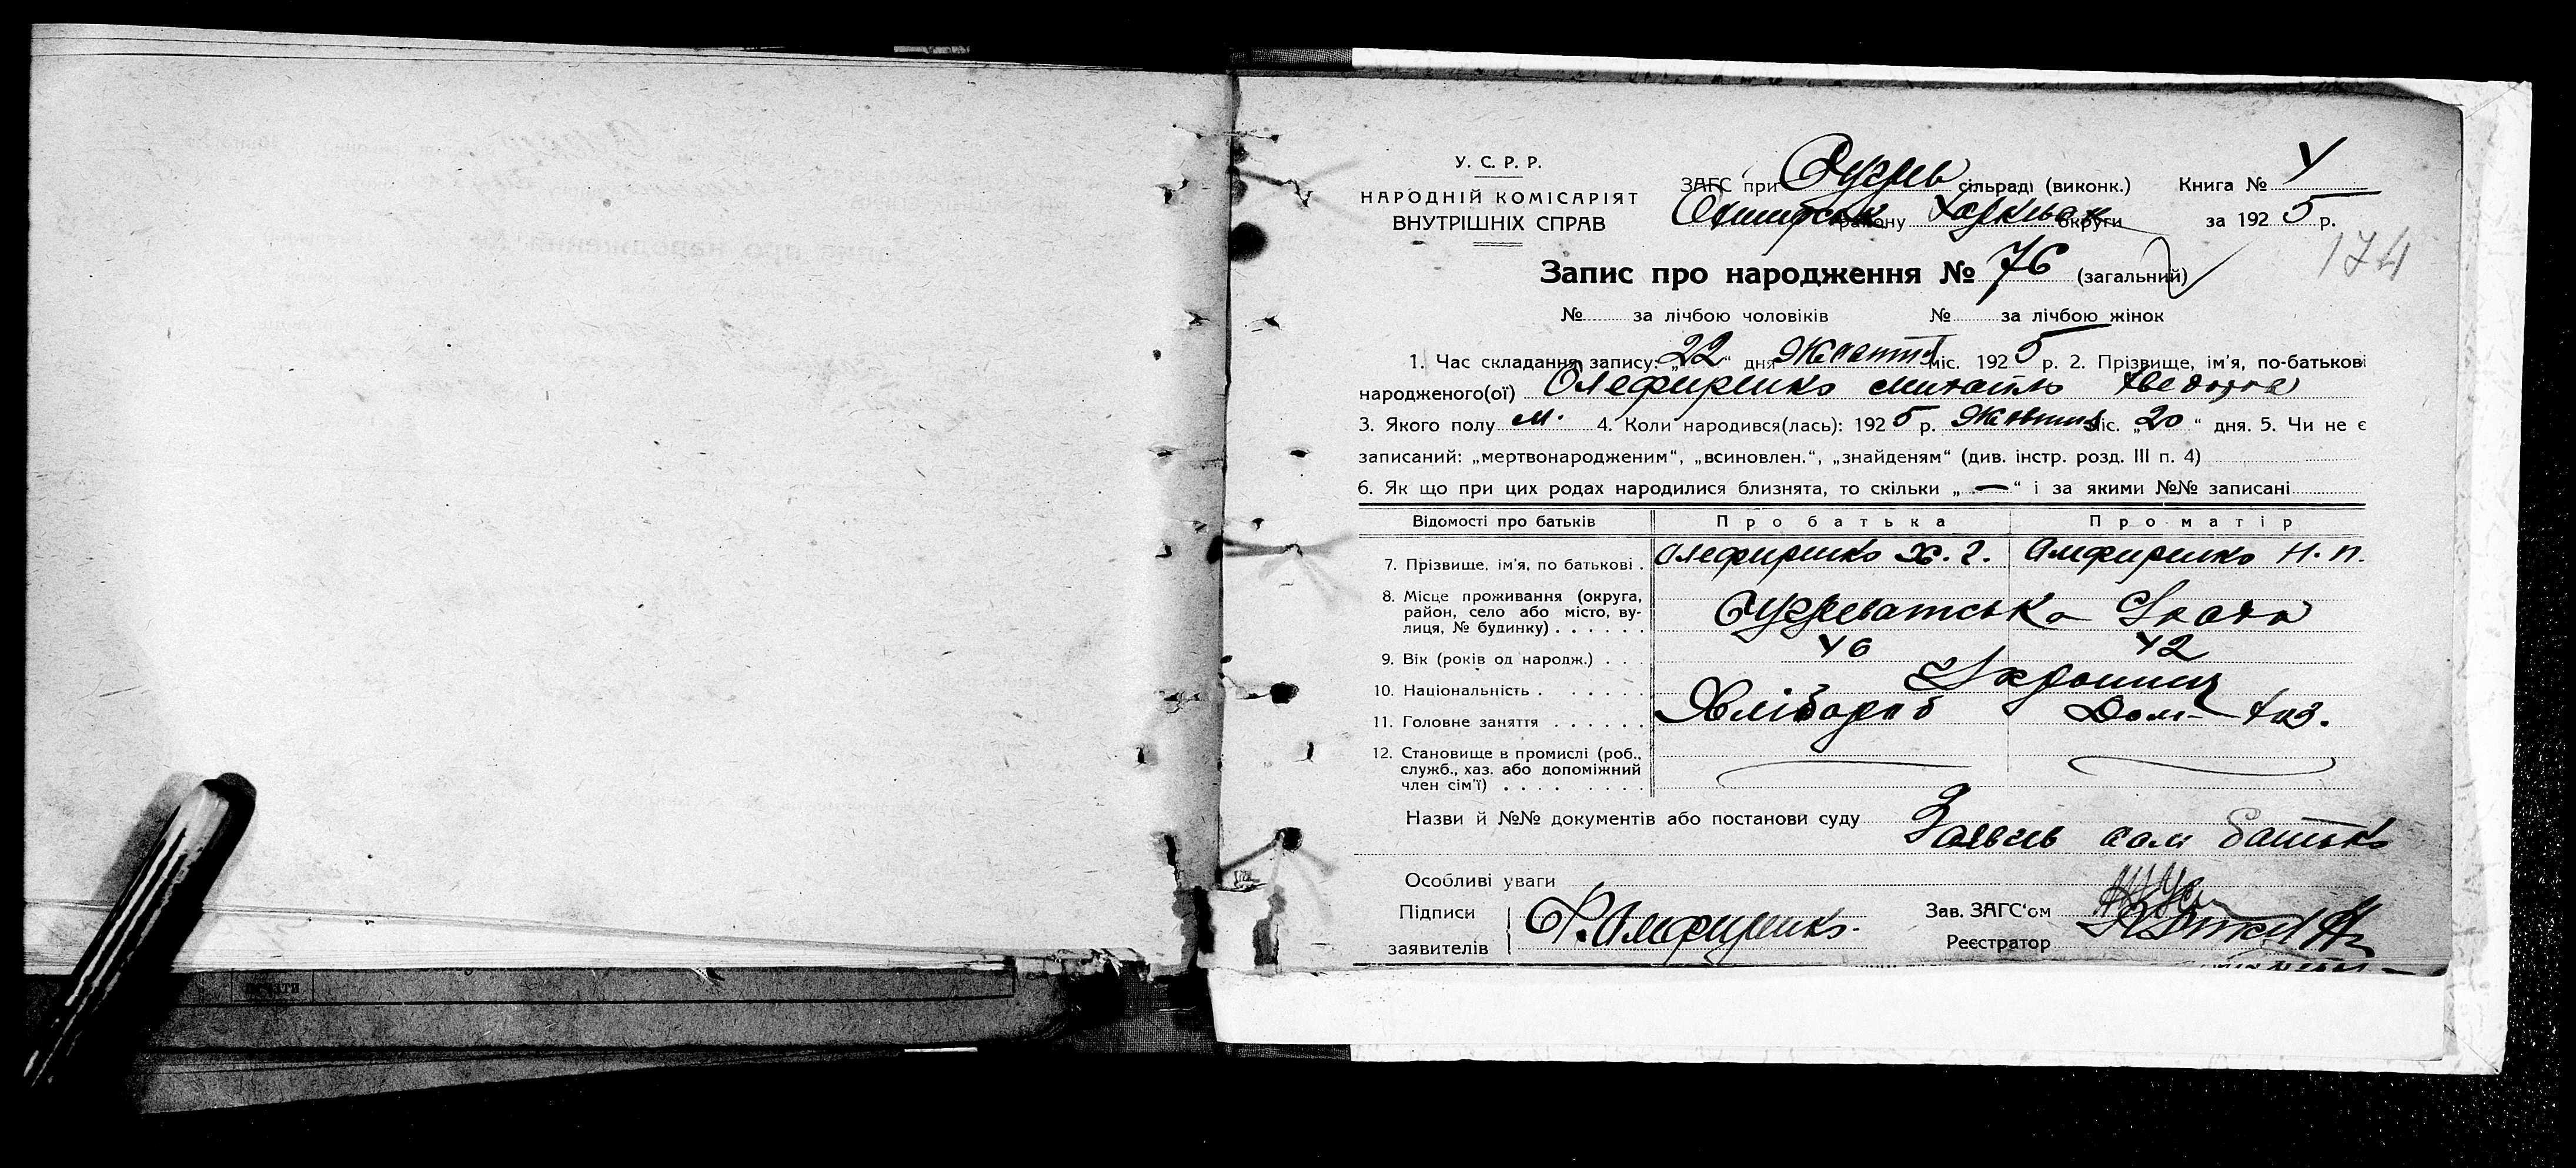 У. С. Р. Р.
НАРОДНІЙ КОМІСАРІЯТ
ВНУТРІШНІХ СПРАВ
ЗАГС при сільраді (виконк.) Книга № 4
району округи за 1925 р.
174
Запис про народження № 76 (загальний)
№ за лічбою чоловіків № за лічбою жінок
1. Час складання запису: „22“ дня Жовтня міс. 1925 р. 2. Прізвище, ім'я, по-батькові
народженого(ої) Олефиренко Михайло
3. Якого полу м. 4. Коли народився(лась): 1925 р. Жовтня міс. „20“ дня. 5. Чи не є
записаний: „мертвонародженим“, „всиновлен.“, „знайденям“ (див. інстр. розд. III п. 4)
6. Як що при цих родах народилися близнята, то скільки „—“ і за якими №№ записані
Відомості про батьків Про батька Про матір
7. Прізвище, ім'я, по батькові . Олефиренко Х. Г. Олефиренко Н. П.
8. Місце проживання (округа,
район, село або місто, ву-
лиця, № будинку) . . . . . .
9. Вік (років од народж.) . . . 46 42
10. Національність . . . . . .
11. Головне заняття . . . . . . Хлібороб Дом. хаз.
12. Становище в промислі (роб.,
служб., хаз. або допоміжний
член сім'ї) . . . . . . . .
Назви й №№ документів або постанови суду Заявив сам батько
Особливі уваги
Підписи Олефиренко Зав. ЗАГС'ом
заявителів Реєстратор
печати